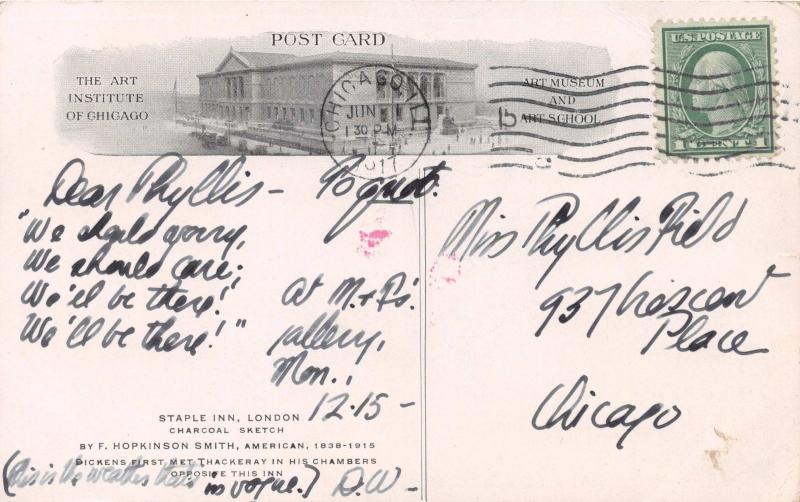 POST CARD
THE ART
INSTITUTE
OF CHICAGO
ART MUSEUM
AND
ART SCHOOL
CHICAGO, ILL
JUN
1 30 PM
1917
U.S. POSTAGE
1 CENT 1
Dear Phyllis –
"We should worry,
We should care:
We'll be there!
We'll be there!"
at M. + R's.
gallery,
Mon.,
12.15 –
Miss Phyllis Field
937 Crescent
Place
Chicago
STAPLE INN, LONDON
CHARCOAL SKETCH
BY F. HOPKINSON SMITH, AMERICAN, 1838-1915
DICKENS FIRST MET THACKERAY IN HIS CHAMBERS
OPPOSITE THIS INN
(This is the weather that's in vogue.) D.W –